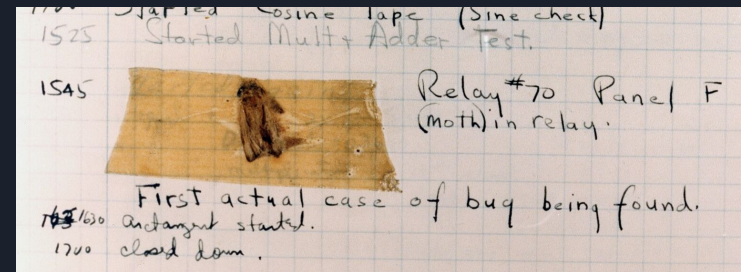 Started Cosine Tape (Sine check)
1525 Started Mult + Adder Test.
1545 Relay #70 Panel F
(moth) in relay.
First actual case of bug being found.
1630 arctangent started.
1700 closed down.